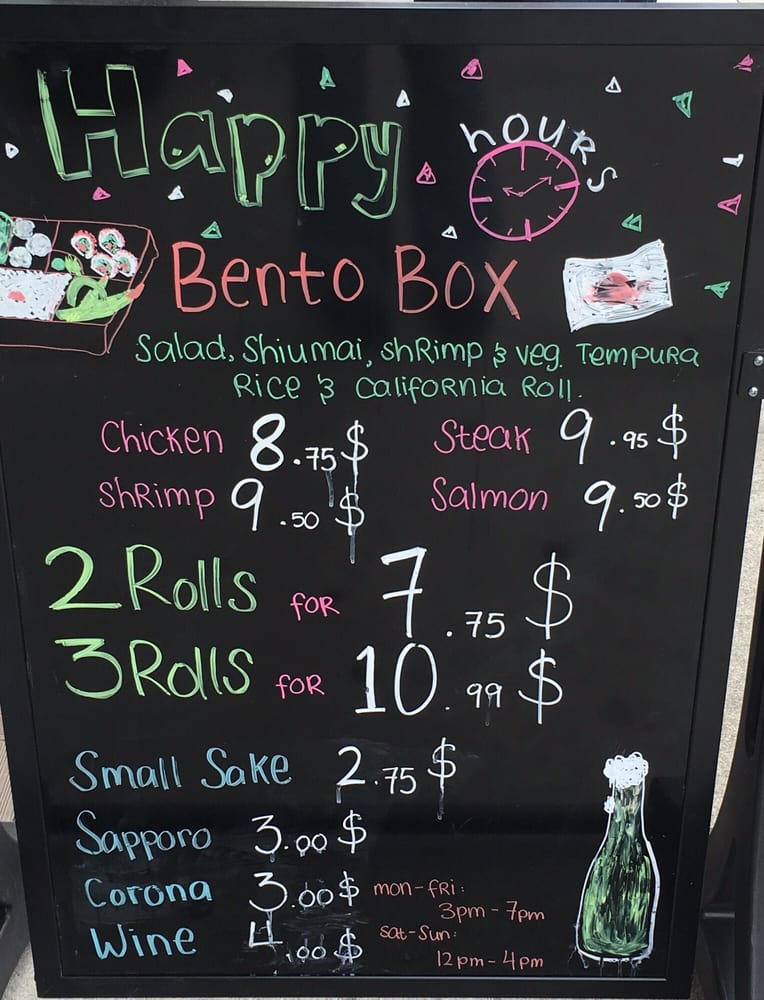 Happy hours
Bento Box
Salad, Shiumai, shRimp & veg. Tempura
Rice & California Roll.
Chicken 8.75$ Steak 9.95$
ShRimp 9.50$ Salmon 9.50$
2 Rolls foR 7.75$
3 Rolls foR 10.99$
Small Sake 2.75$
Sapporo 3.00$
Corona 3.00$
Wine 4.00$
mon-fRi:
3pm-7pm
Sat-Sun:
12pm-4pm